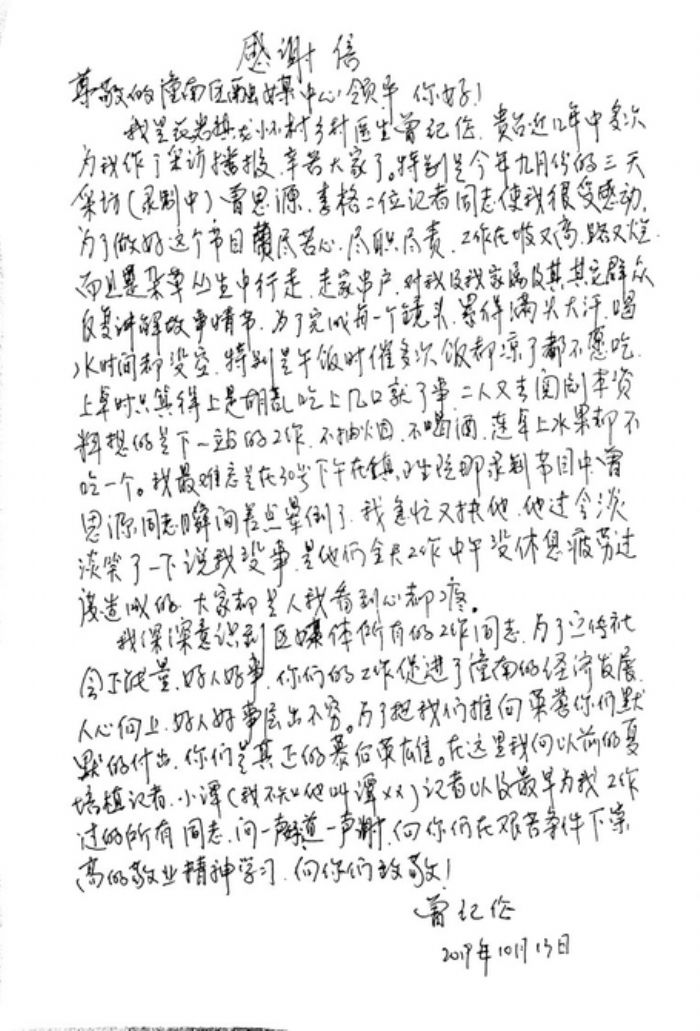 感谢信
尊敬的潼南区融媒中心领导 你好！
我是 龙 村乡村医生曾纪 ，贵台近12年中多次
为我作了采访播报，辛苦大家了。特别是今年九月份的三天
采访（录制中）曾思源、李格二位记者同志使我很受感动，
为了做好这个节目费尽苦心，尽职尽责，工作在坡又高，路又烂，
而且是杂草丛生中行走，走家串户，对我及我家属及其 群众
反复讲解故事情节，为了完成每一个镜头，累得满头大汗，喝
水时间都没空，特别是午饭时催多次饭都凉了都不愿吃，
上桌时只算得上是胡乱吃上几口就了事，二人又去 资
料想的是下一站的工作，不抽烟，不喝酒，连桌上水果都不
吃一个。我最难忘是在30号下午在镇卫生院那录制节目中，曾
思源同志瞬间差点晕倒了，我急忙又扶他，他过会淡
淡笑了一下说我没事，是他们全天工作中午没休息疲劳过
度造成的，大家都是人我看到心都疼。
我深深意识到区媒体所有的工作同志，为了宣传社
会正能量，好人好事，你们的工作促进了潼南的经济发展，
人心向上，好人好事层出不穷。为了把我们推向荣誉你们默
默的付出，你们是真正的幕后英雄。在这里我向以前的夏
培植记者，小谭（我不知他叫谭xx）记者以及最早为我工作
过的所有同志，问一声好道一声谢，向你们在艰苦条件下崇
高的敬业精神学习，向你们致敬！
曾纪
2019年10月13日